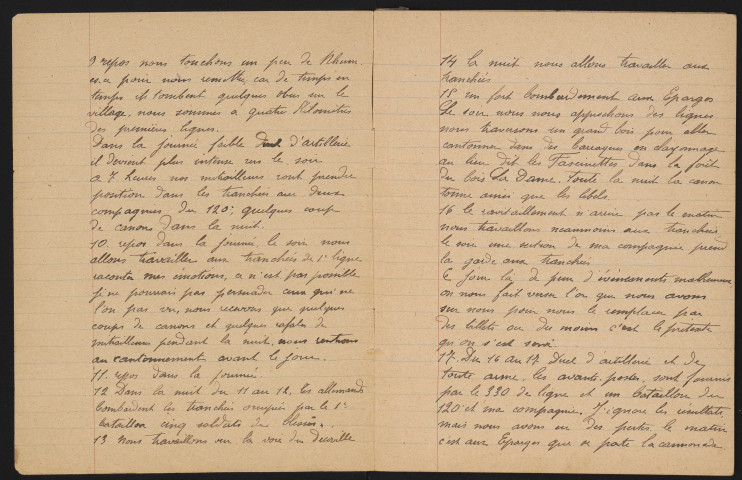 9 repos nous touchons un peu de Rhum
ce pour nous remettre, car de temps en
temps ils tombent quelques obus sur le
village, nous sommes a quatre Kilomètres
des premières lignes.
Dans la journée faible duel d'artillerie
il devient plus intense vers le soir
a 7 heures nos mitrailleurs vont prendre
position dans les tranchées aux deux
compagnies du 120e; quelques coup
de canons dans la nuit.
10. repos dans la journée, le soir nous
allons travailler aux tranchées de 1e ligne
raconter mes émotions, ce n'est pas possible
je ne pourrais pas persuader ceux qui ne
l'on pas vu, nous recevons que quelques
coups de canons et quelques rafales de
mitrailleuses pendant la nuit, nous rentrons
au cantonnement avant le jour.
11. repos dans la journée.
12 Dans la nuit du 11 au 12, les allemands
bombardent les tranchées occupées par le 1e
bataillon cinq soldats de blessés.
13 Nous travaillons sur la voie du decauville
14 La nuit nous allons travailler aux
tranchées
15 un fort bombardement aux Eparges
Le soir nous nous approchons des lignes
nous traversons un grand bois pour aller
cantonner dans des baraques en clayonnage
au lieu dit les Tascinettes dans la forêt
du bois La Dame. Toute la nuit le canon
tonne ainsi que les lebels.
16 le ravitaillement n'arrive pas le matin
nous travaillons néanmoins aux tranchées
le soir une section de ma compagnie prend
la garde aux tranchées
Ce jour là de peu d'évènements malheureux
on nous fait verser l'or que nous avons
sur nous pour nous le remplacer par
des billets ou du moins c'est le prétexte
qui on s'est servi
17. Du 16 au 17 Duel d'artillerie et de
toute arme, les avants-postes, sont fournis
par le 330 de ligne et un bataillon du
120 et ma compagnie. J'ignore les résultats
mais nous avons eu des pertes. le matin
c'est aux Eparges que se porte la canonnade